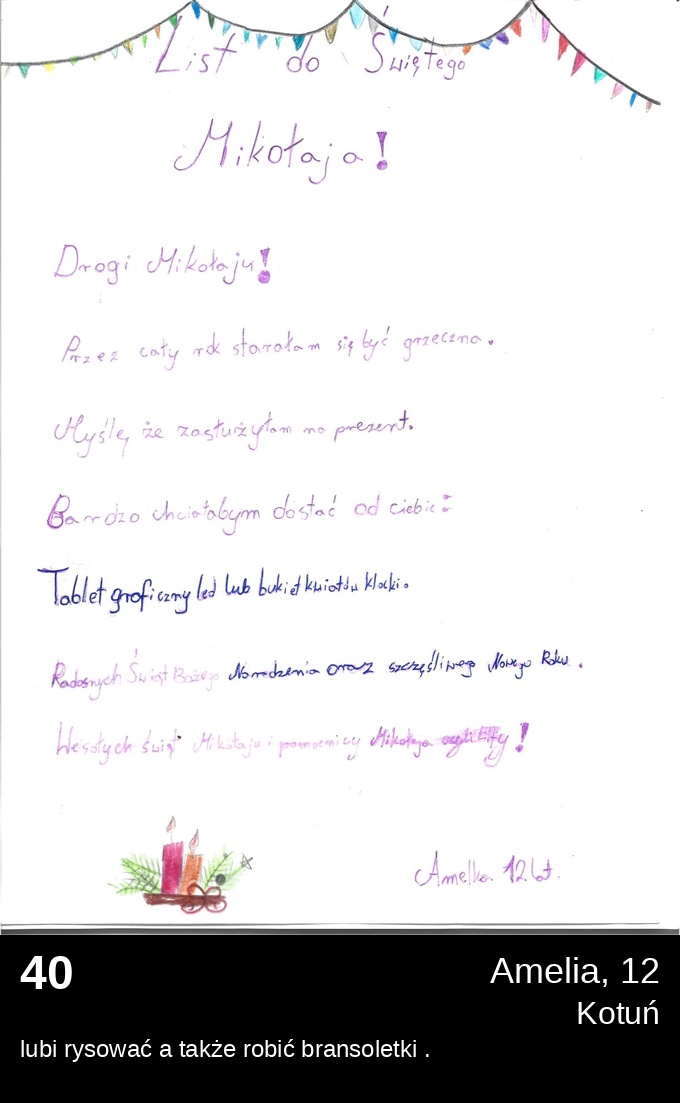 List do Świętego
Mikołaja!
Drogi Mikołaju!
Przez cały rok starałam się być grzeczna.
Myślę, że zasłużyłam na prezent.
Bardzo chciałabym dostać od ciebie:
Tablet graficzny led lub bukiet kwiatów klocki.
Radosnych Świąt Bożego Narodzenia oraz szczęśliwego Nowego Roku.
Wesołych świąt Mikołaju i pomocnicy Mikołaja czyli Elfy!
Amelka 12 lat.
40
Amelia, 12
Kotuń
lubi rysować a także robić bransoletki .